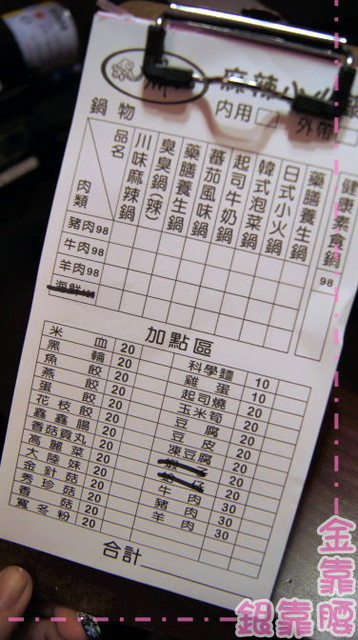 麻辣小火
內用 外帶
鍋物
品名 川味麻辣鍋 臭臭鍋 辣 藥膳養生鍋 蕃茄風味鍋 起司牛奶鍋 韓式泡菜鍋 日式小火鍋 藥膳養生鍋 健康素食鍋
肉類
98
豬肉98
牛肉98
羊肉98
海鮮
加點區
米血 20 科學麵 10
黑輪 20 雞蛋 10
魚餃 20 起司燒 20
燕餃 20 玉米筍 20
蛋餃 20 豆腐 20
花枝餃 20 豆皮 20
鑫鑫腸 20 凍豆腐 20
香菇貢丸 20 20
高麗菜 20 20
大陸妹 20 牛肉 30
金針菇 20 豬肉 30
秀珍菇 20 羊肉 30
香菇 20
寬冬粉 20
合計
金靠腰
銀靠腰